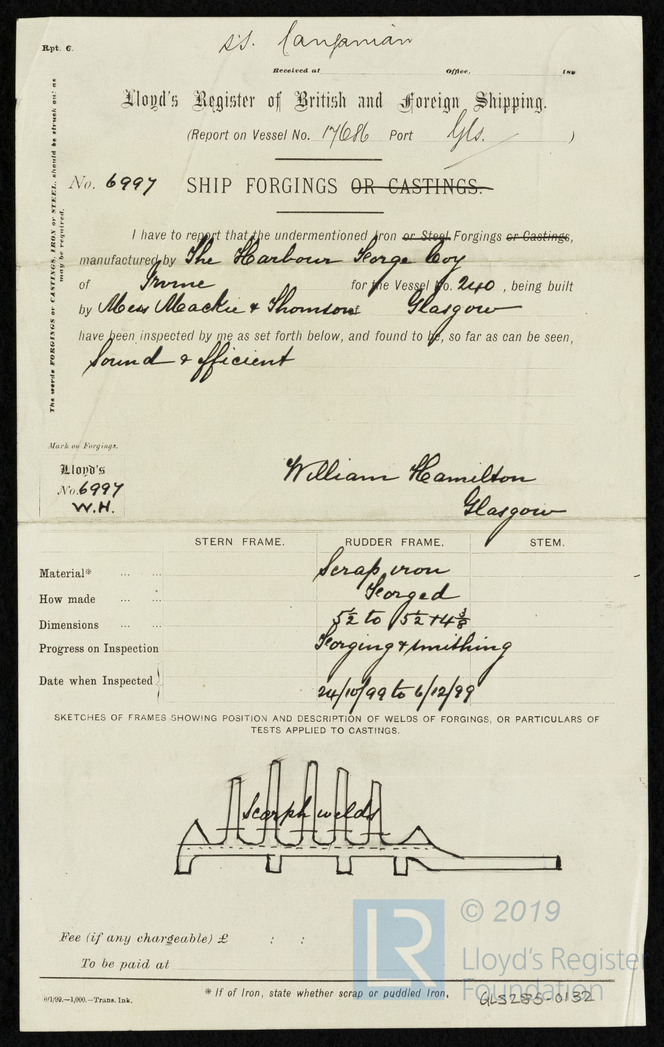 Rpt. 6.
S.S. Cangonian
Received at Office, 189
Lloyd's Register of British and Foreign Shipping.
(Report on Vessel No. 17686 Port Gls. )
No. 6997 SHIP FORGINGS OR CASTINGS.
The words FORGINGS or CASTINGS, IRON or STEEL, should be struck out as
may be required.
I have to report that the undermentioned Iron or Steel Forgings or Castings,
manufactured by The Harbour Forge Coy
of Irvine for the Vessel No. 240, being built
by Mess Mackie & Thomson Glasgow
have been inspected by me as set forth below, and found to be, so far as can be seen,
Sound & efficient
Mark on Forgings.
Lloyd's
No. 6997
W.H.
William Hamilton
Glasgow
STERN FRAME. RUDDER FRAME. STEM.
Material* ... ... Scrap iron
How made ... ... Forged
Dimensions ... ... 5½ to 5½ + 4⅜
Progress on Inspection Forging & smithing
Date when Inspected 24/10/99 to 6/12/99
SKETCHES OF FRAMES SHOWING POSITION AND DESCRIPTION OF WELDS OF FORGINGS, OR PARTICULARS OF
TESTS APPLIED TO CASTINGS.
Scarph welds
LR © 2019
Lloyd's Register
Foundation
Fee (if any chargeable) £ : :
To be paid at
* If of Iron, state whether scrap or puddled Iron.
6/1/99.—1,000.—Trans. Ink.
GLS285-0132